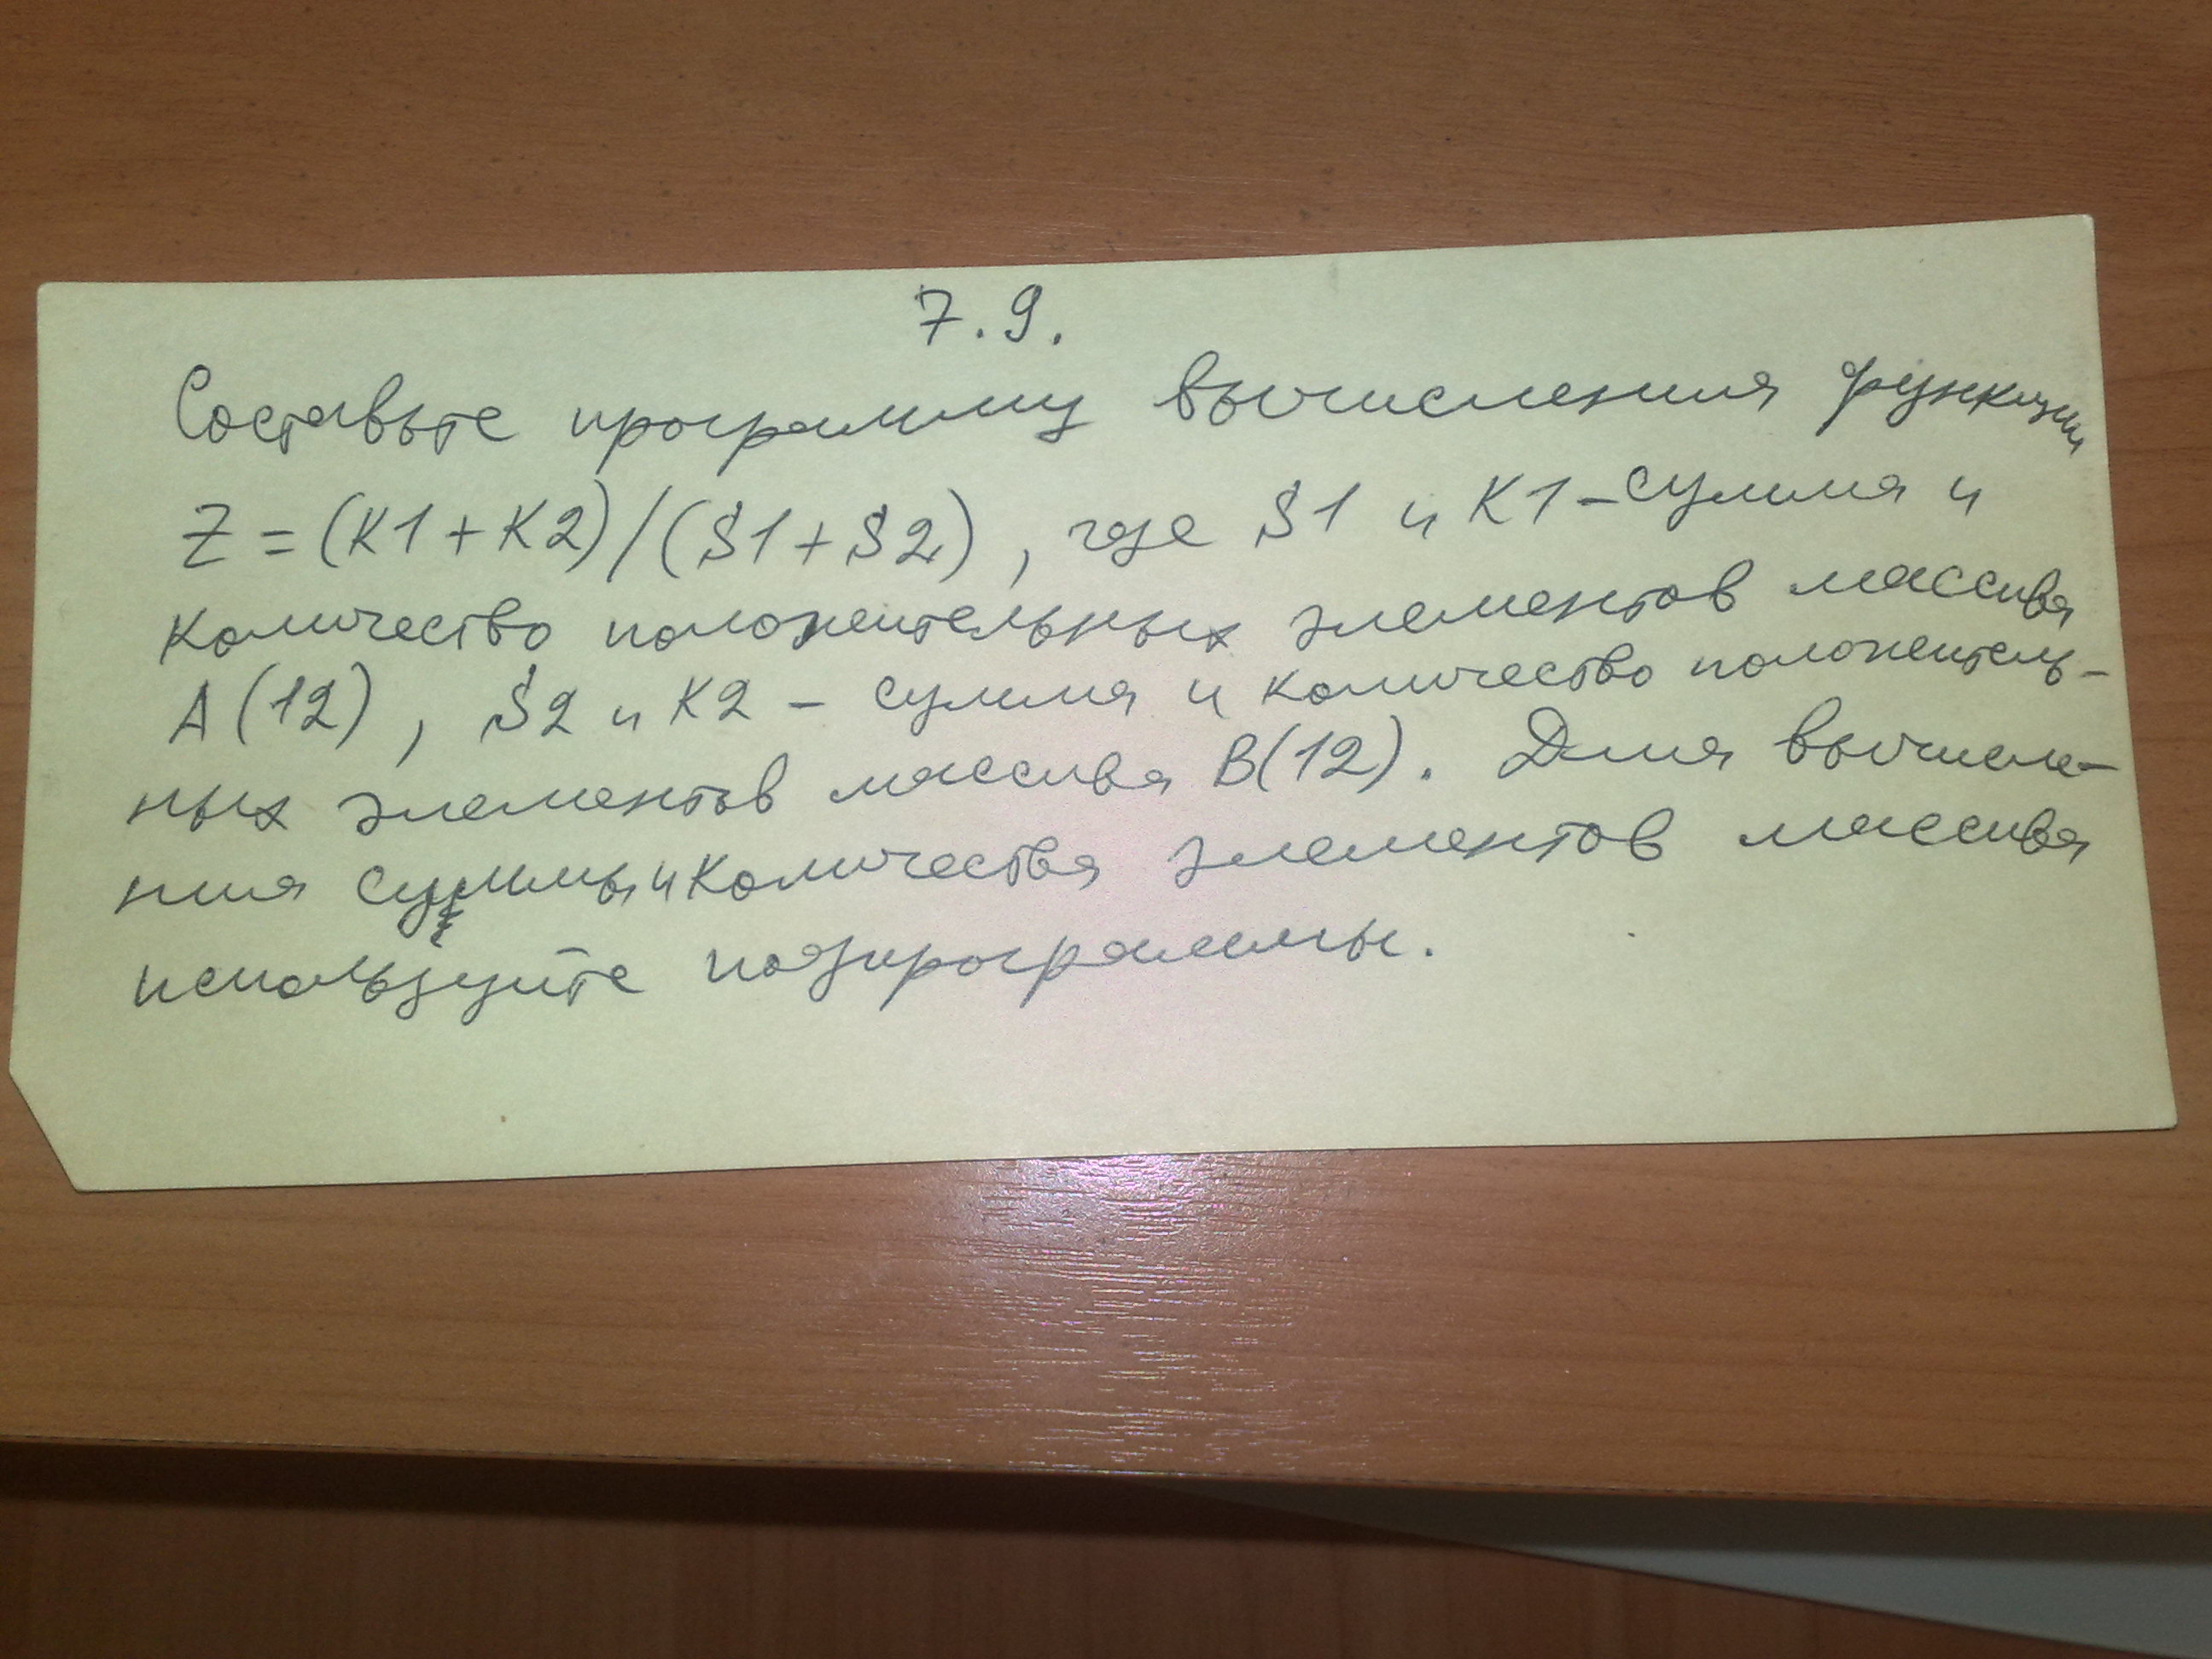 7.9.
Составьте программу вычисления функции
Z = (K1 + K2) / (S1 + S2) , где S1 и K1 – сумма и
количество положительных элементов массива
A (12) , S2 и K2 – сумма и количество положитель-
ных элементов массива B(12). Для вычисле-
ния суммы и количества элементов массива
используйте подпрограммы.